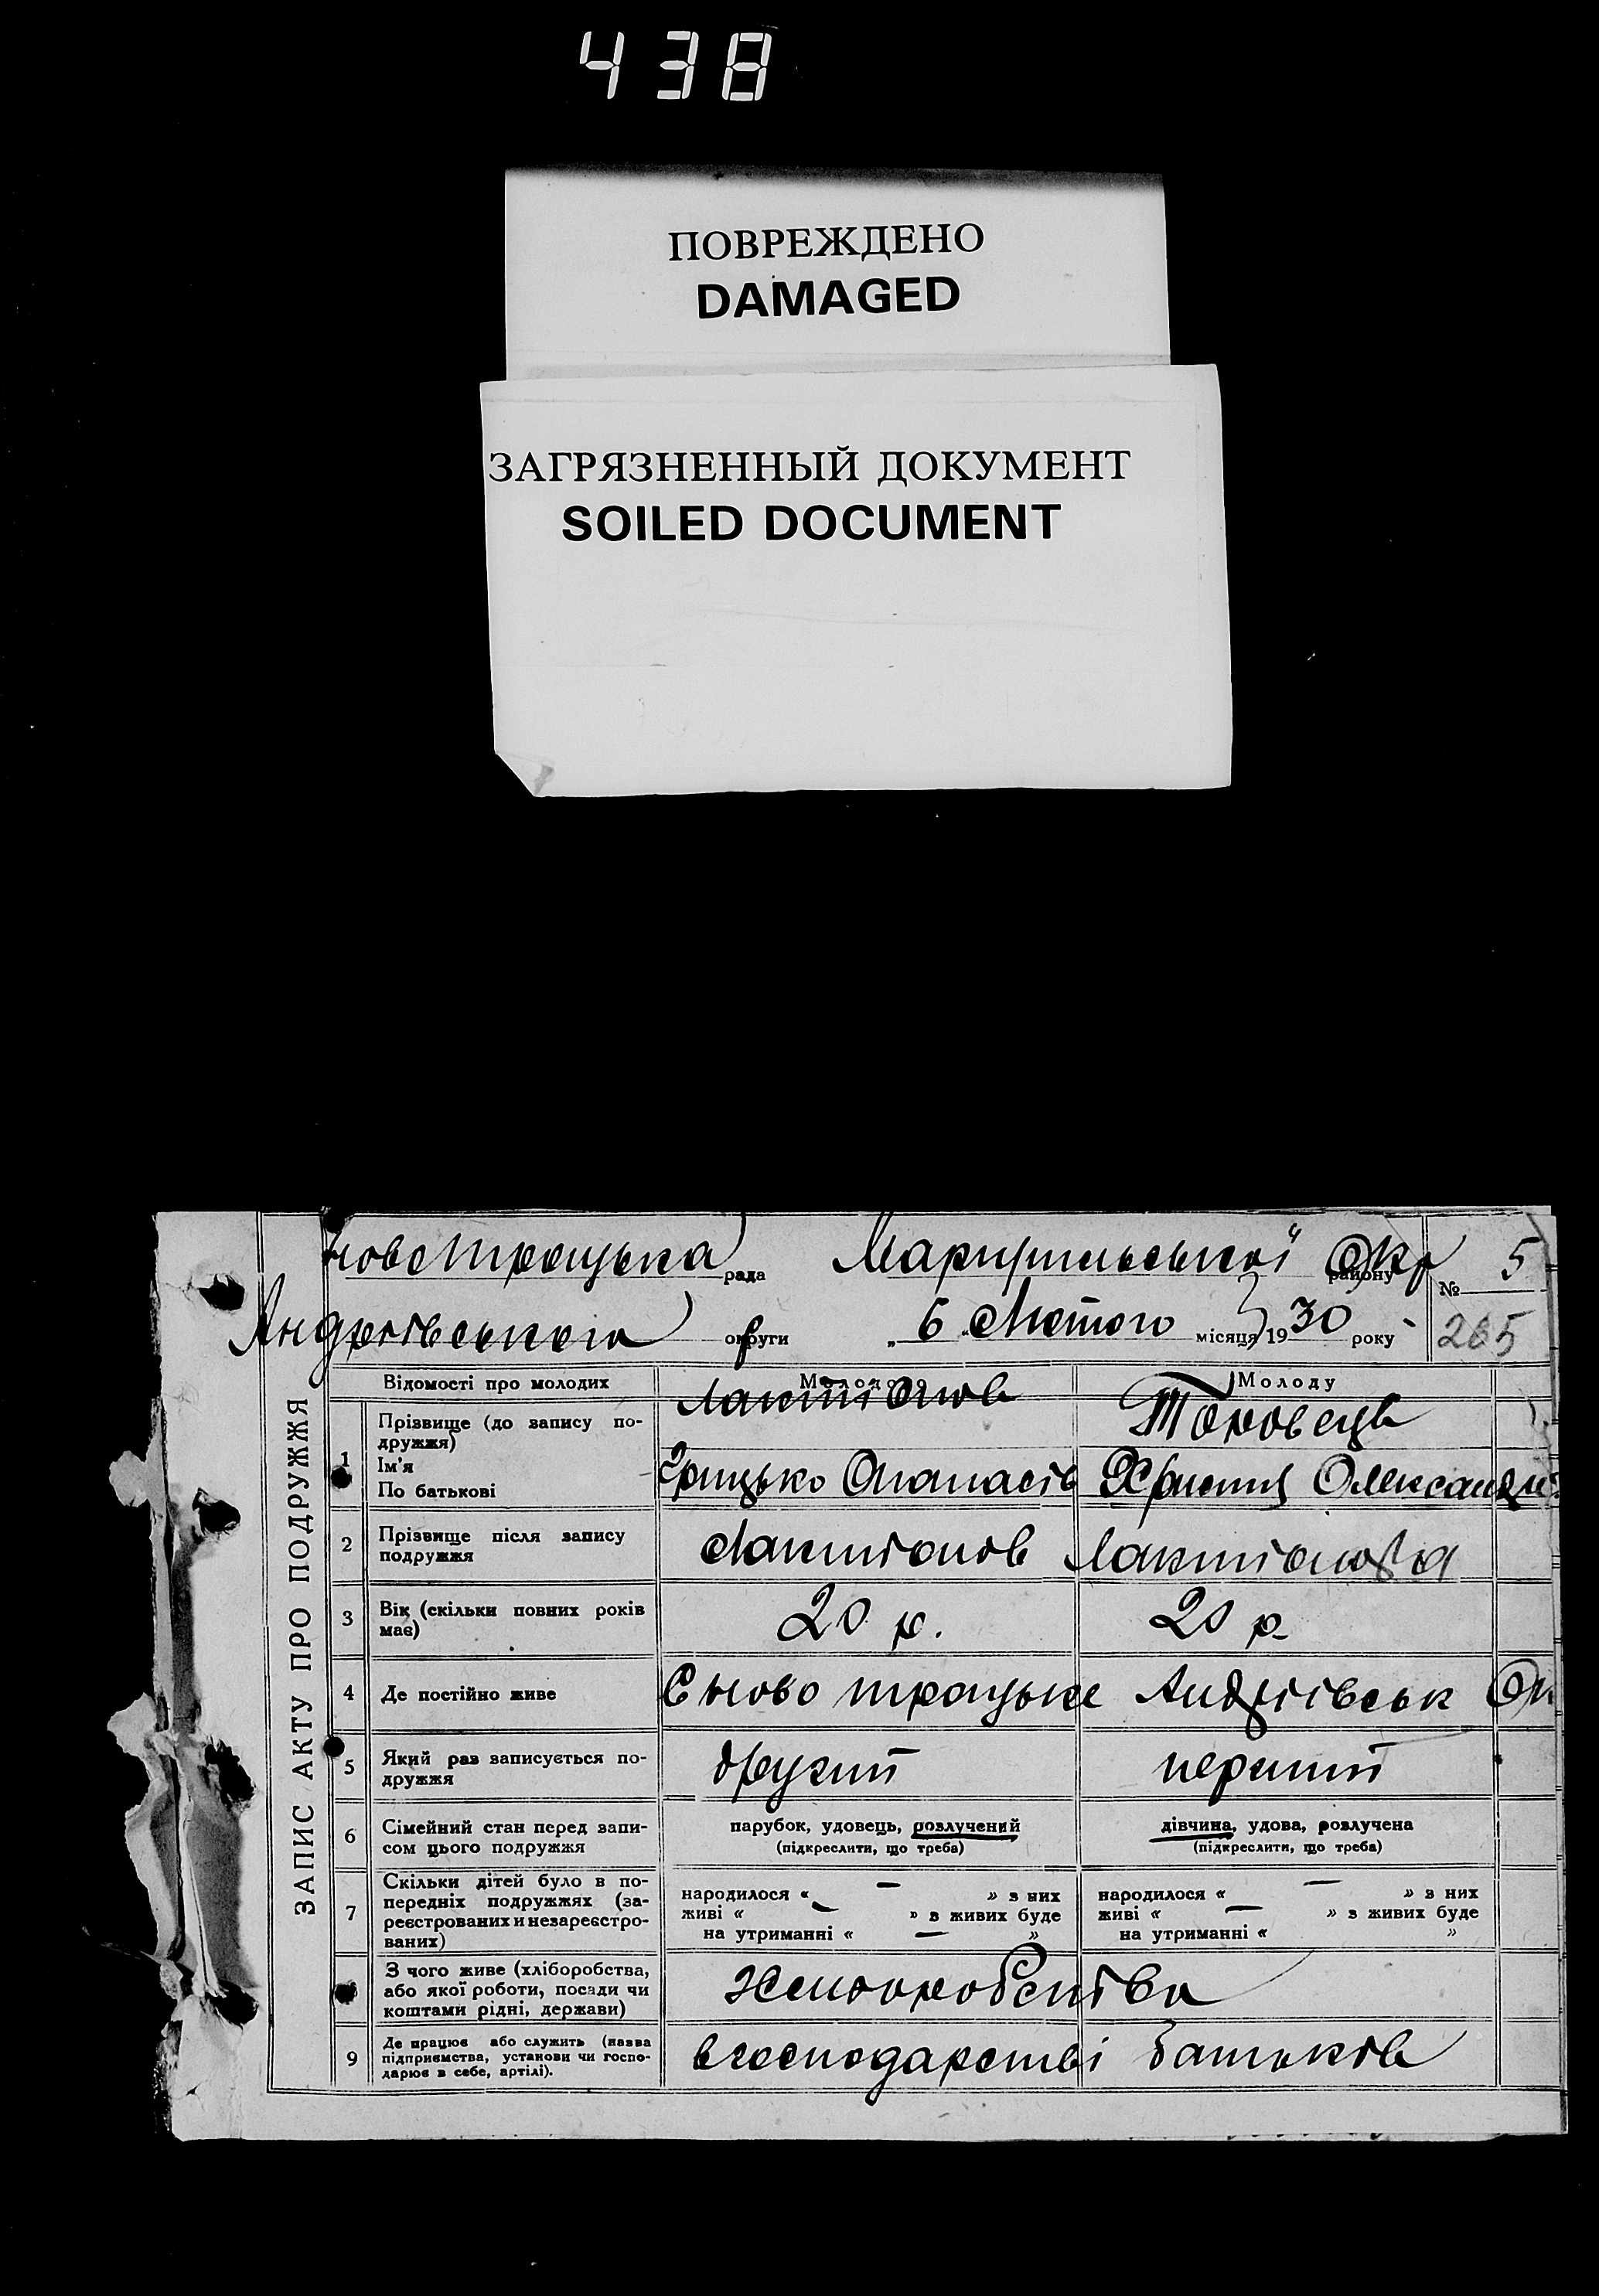 438
ПОВРЕЖДЕНО
DAMAGED
ЗАГРЯЗНЕННЫЙ ДОКУМЕНТ
SOILED DOCUMENT
ЗАПИС АКТУ ПРО ПОДРУЖЖЯ
Новотроцька рада Маріупільської Окр району № 5
Андріївського округи „ 6 „ Лютого місяця 1930 року 265
Відомості про молодих Молодого Молоду
1 Прізвище (до запису по-
дружжя) Лактіонов
Ім'я
По батькові Грицько Опанасів Христя Олександр
2 Прізвище після запису
подружжя Лактіонов Лактіонова
3 Вік (скільки повних років
має) 20 р. 20 р.
4 Де постійно живе С Ново троцьке Андріївськ
5 Який раз записується по-
дружжя другий перший
6 Сімейний стан перед запи-
сом цього подружжя
парубок, удовець, розлучений
(підкреслити, що треба)
дівчина, удова, розлучена
(підкреслити, що треба)
7 Скільки дітей було в по-
передніх подружжях (за-
реєстрованих и незареєстро-
ваних)
народилося « — » з них
живі « — » з живих буде
на утриманні « — »
народилося « — » з них
живі « — » з живих буде
на утриманні « »
З чого живе (хліборобства,
або якої роботи, посади чи
коштами рідні, держави)
9 Де працює або служить (назва
підприємства, установи чи госпо-
дарює в себе, артілі).
в господарстві батьків